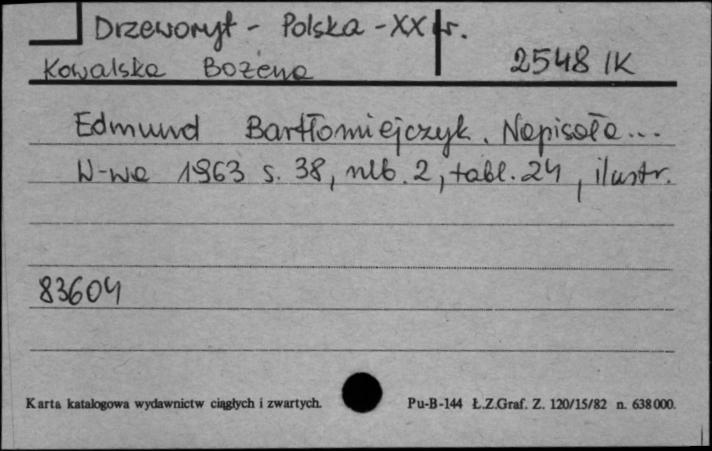 Drzeworyt - Polska - XX w.
Kowalska Bożena 2548 IK
Edmund Bartłomiejczyk. Napisała...
W-wa 1963 s. 38, nlb. 2, tabl. 24, ilustr.
83604
Karta katalogowa wydawnictw ciągłych i zwartych. Pu-B-144 Ł.Z.Graf. Z. 120/15/82 n. 638000.